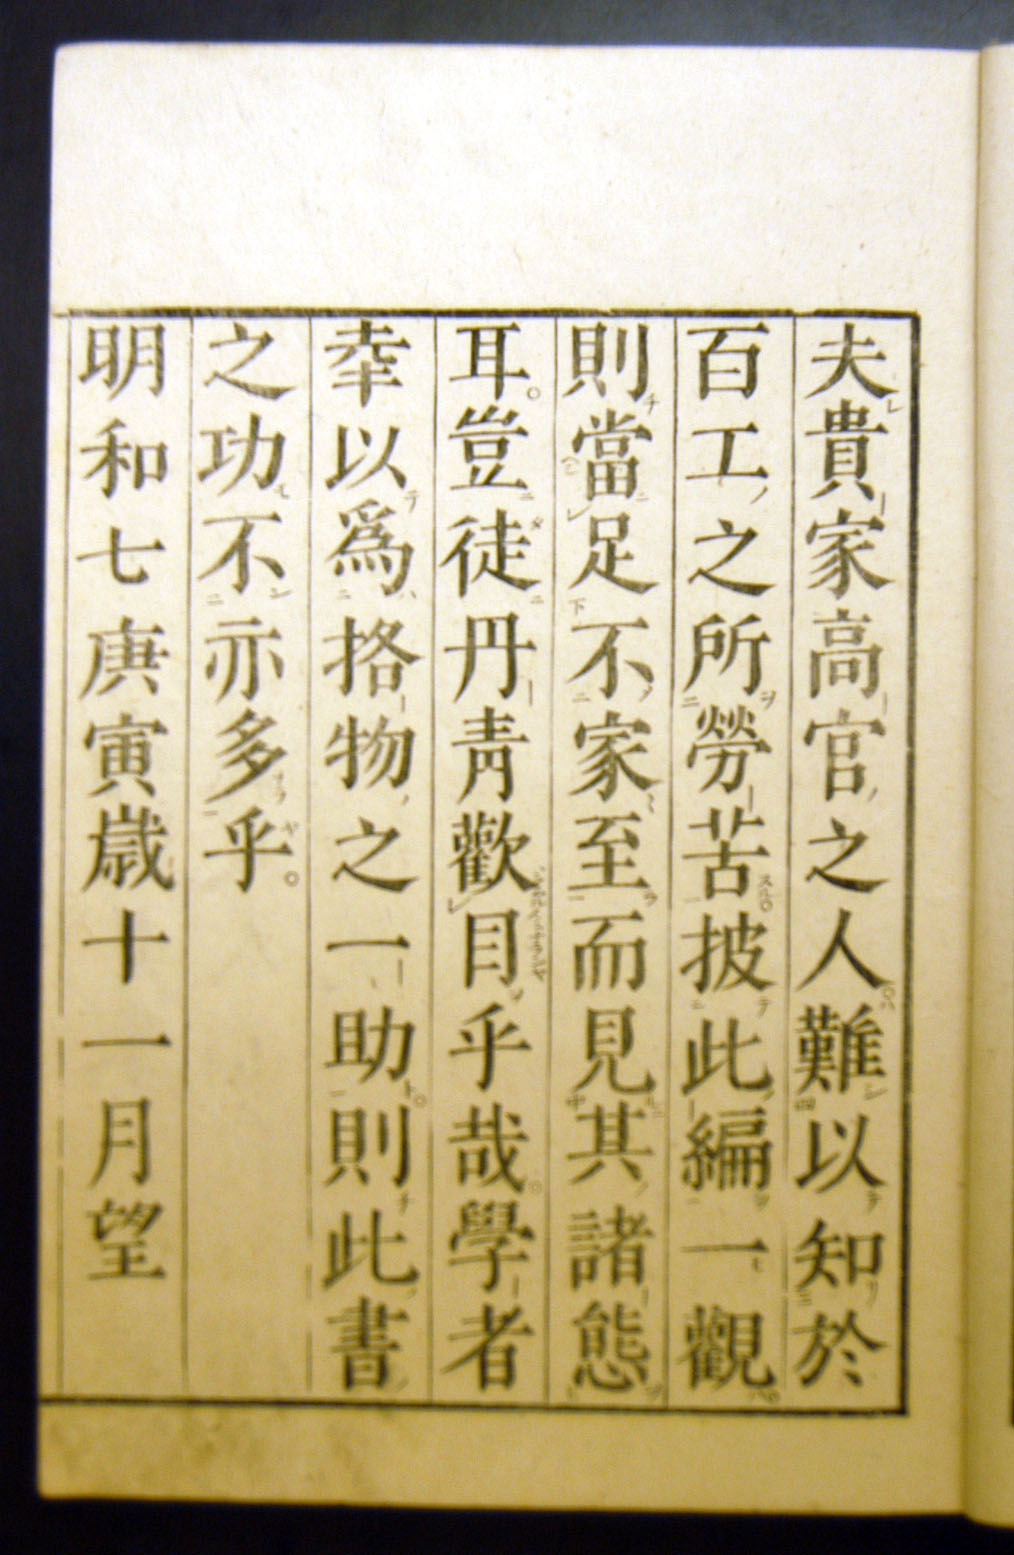 夫貴家高官之人難以知於
百工之所勞苦披此編一觀
則當足不家至而見其諸態
耳。豈徒丹靑歡目乎哉。學者
幸以爲格物之一助。則此書
之功不亦多乎。
明和七庚寅歳十一月望